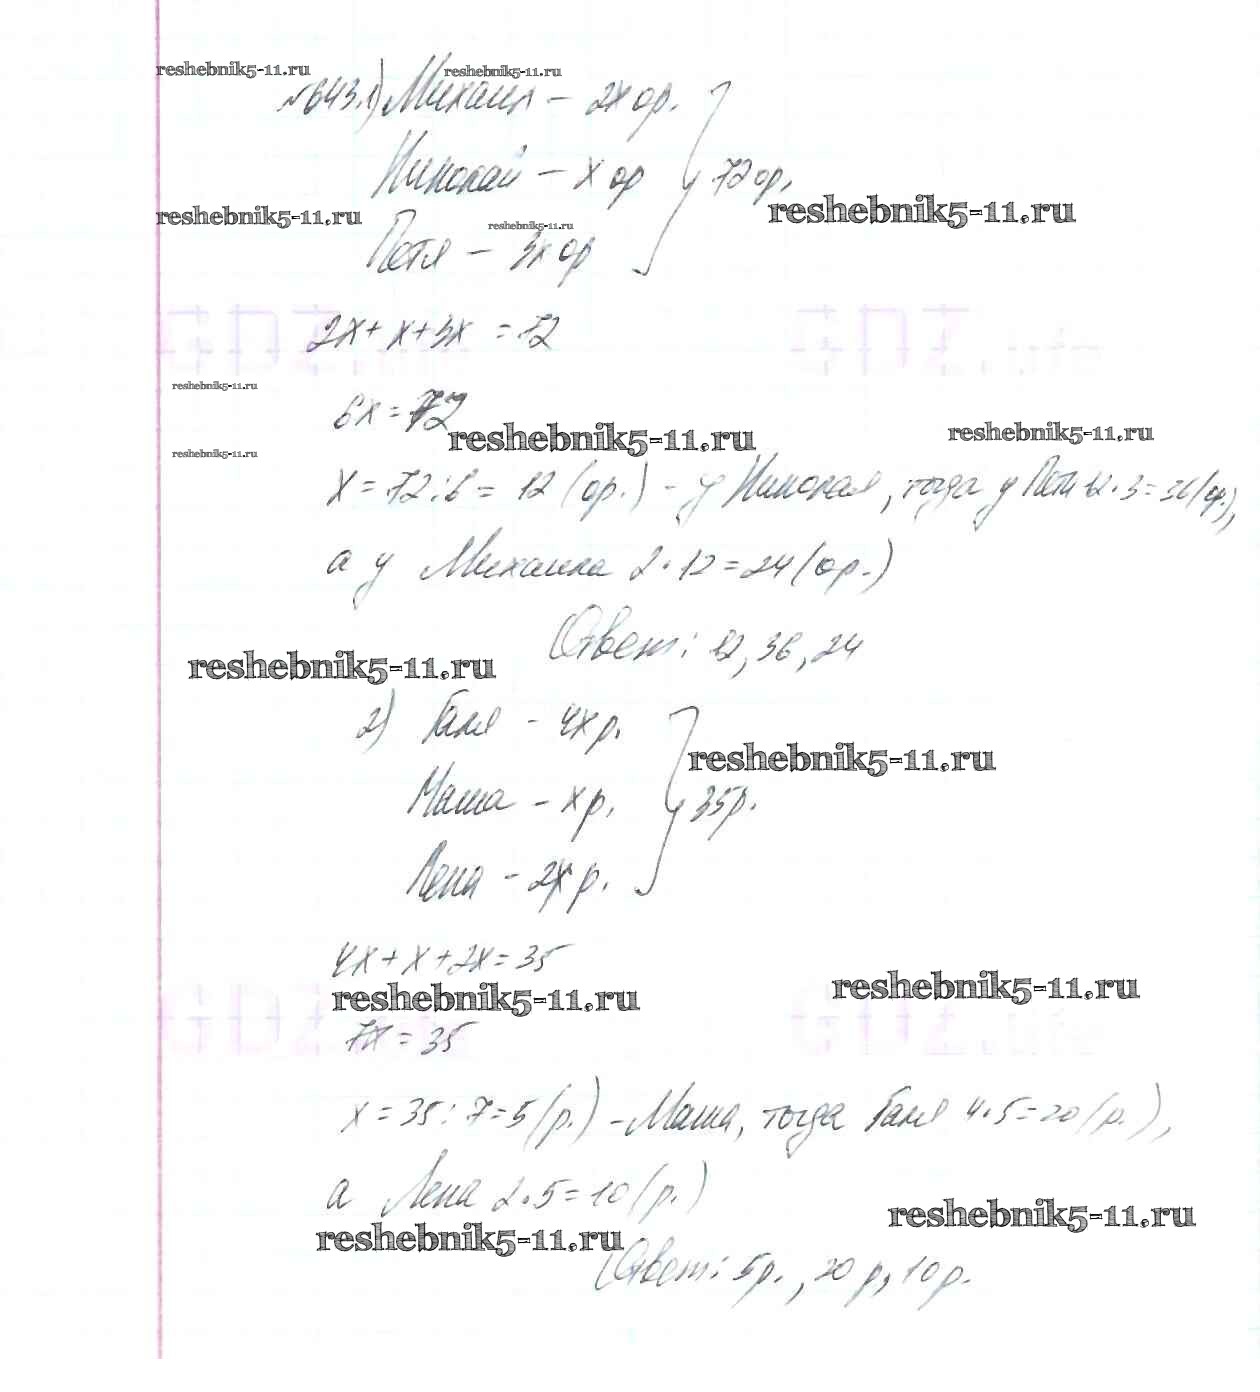 reshebnik5-11.ru reshebnik5-11.ru
№643.1) Михаил – 2х ор.
Николай – х ор } 72 ор.
reshebnik5-11.ru reshebnik5-11.ru reshebnik5-11.ru
Петя – 3х ор
2х + х + 3х = 72
GDZ GDZ
reshebnik5-11.ru
6х = 72
reshebnik5-11.ru reshebnik5-11.ru
reshebnik5-11.ru
х = 72 : 6 = 12 (ор.) – у Николая, тогда у Пети 12 · 3 = 36 (ор.),
а у Михаила 2 · 12 = 24 (ор.)
Ответ: 12, 36, 24
reshebnik5-11.ru
2) Галя – 4х р.
reshebnik5-11.ru
Маша – х р. } 35р.
Лена – 2х р.
4х + х + 2х = 35
reshebnik5-11.ru reshebnik5-11.ru
GDZ GDZ
7х = 35
х = 35 : 7 = 5 (р.) – Маша, тогда Галя 4 · 5 = 20 (р.),
а Лена 2 · 5 = 10 (р.)
reshebnik5-11.ru reshebnik5-11.ru
Ответ: 5р., 20 р, 10 р.